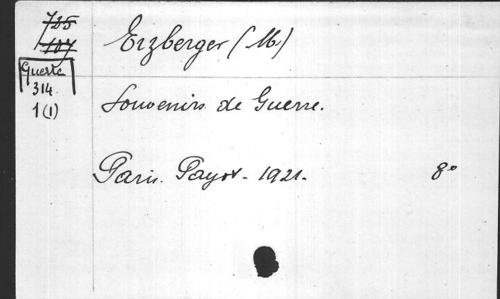 725
107
Guerre
314
1(1)
Erzberger (M.)
Souvenirs de Guerre.
Paris. Payot. 1921. 8°